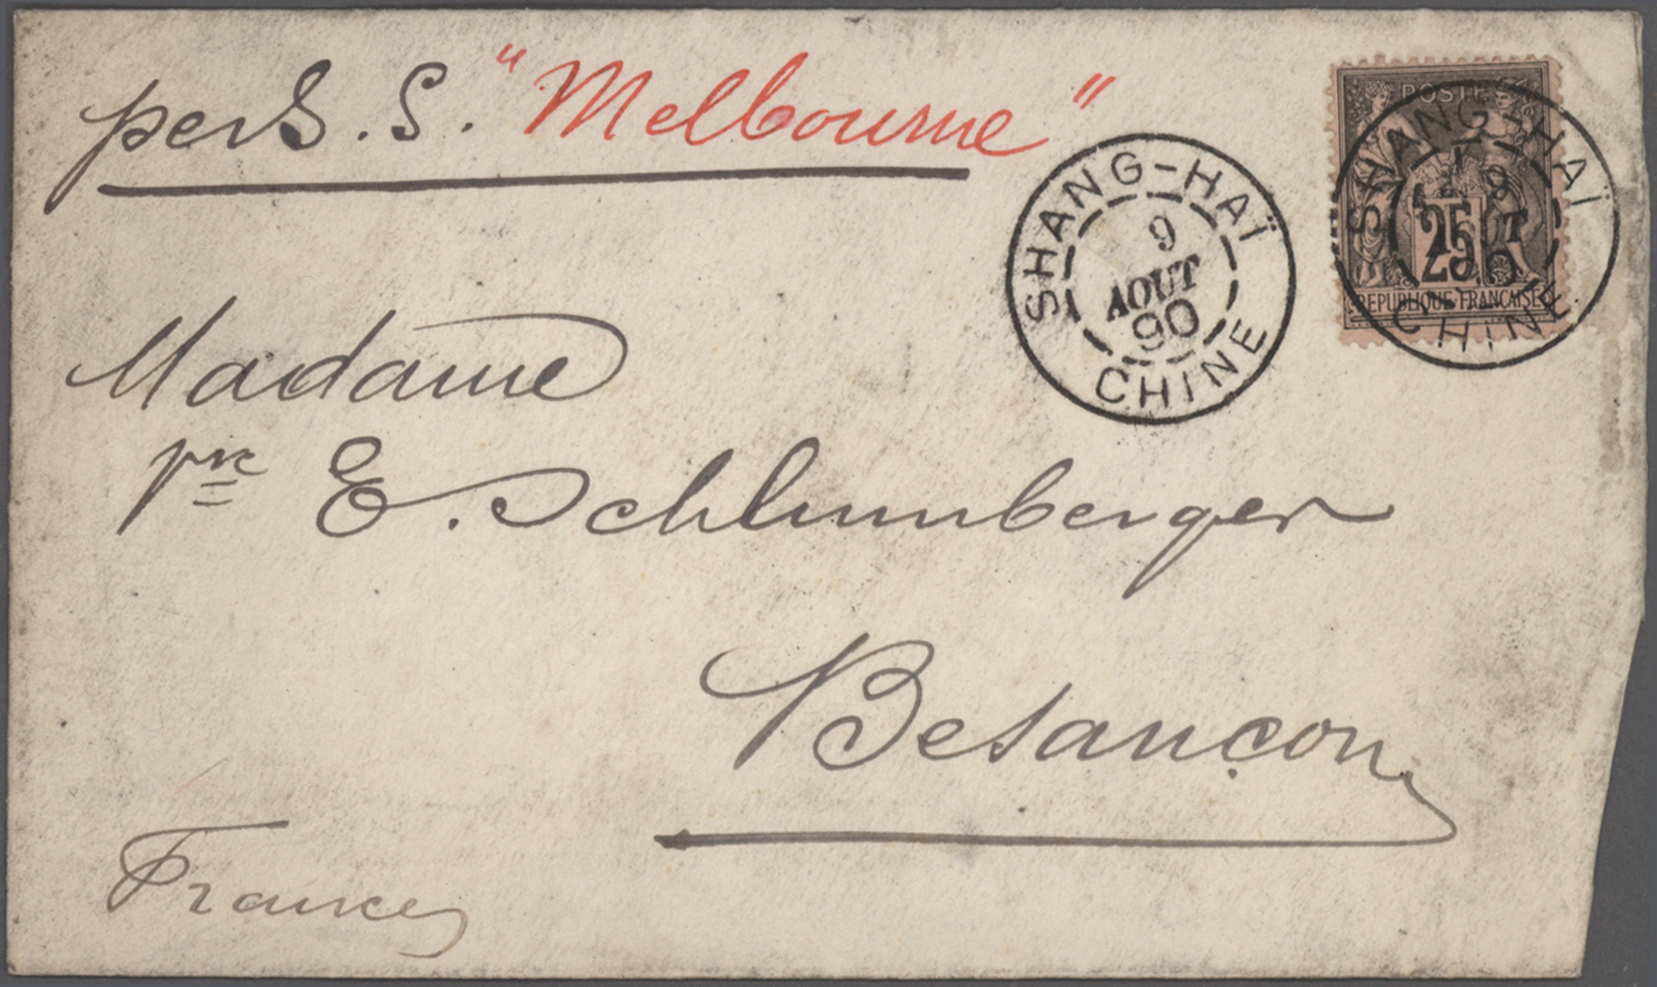 per S.S. "Melbourne"
SHANG-HAÏ
9
AOUT
90
CHINE
POSTE
SHANG-HAÏ
25
REPUBLIQUE FRANCAISE
CHINE
Madame
pre E. Schlumberger
Besançon
France